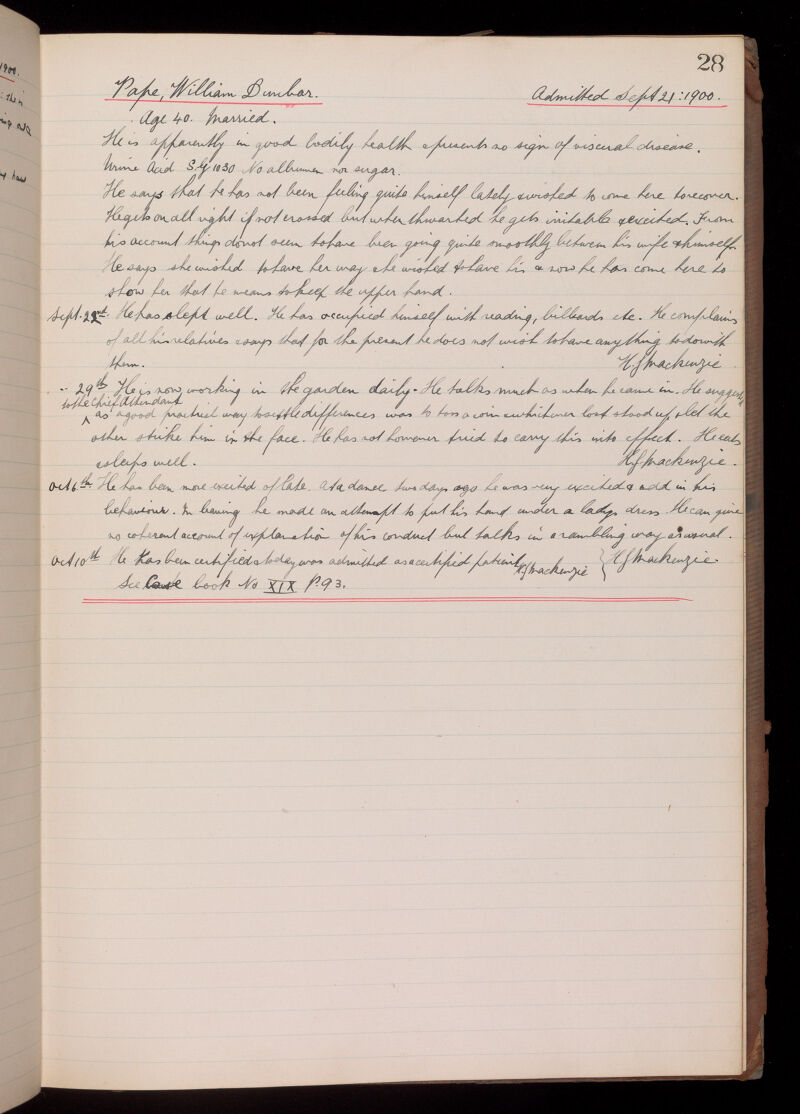 28
Pape, William Dunbar. Admitted Sept 21: 1900.
Age 40. Married.
He is apparently in good bodily health & presents no sign of visceral disease.
Urine Acid S.G 1030 No albumen nor sugar.
He says that he has not been feeling quite himself lately & wished to come here to recover.
He gets on all right if not crossed but when thwarted he gets irritable & excited. From
his account things do not seem to have been going quite smoothly between his wife & himself.
He says she wished to have her way & he wished to have his & now he has come here to
show her that he means to keep the upper hand.
Sept. 22nd. He has slept well. He has occupied himself with reading, billiards etc. He complains
of all his relatives & says that for the present he does not wish to have anything to do with
them. H J Mackenzie
" 29th He is now working in the garden daily. He talks much as when he came in. He suggests
to the Chief Attendant
as a good practical way to settle differences was to toss a coin & whichever lost stood up & let the
other strike him in the face. He has not however tried to carry this into effect. He eats
& sleeps well. H J Mackenzie.
Oct 6th. He has been more excited of late. At a dance two days ago he was very excited & odd in his
behaviour. In leaving he made an attempt to put his hand under a lady's dress. He can give
no coherent account of explanation of his conduct but talks in a rambling way as usual.
Oct 10th He has been certified & today was admitted as a certified patient H J Mackenzie } H J Mackenzie.
See Case book No XIX P. 93.
1900.